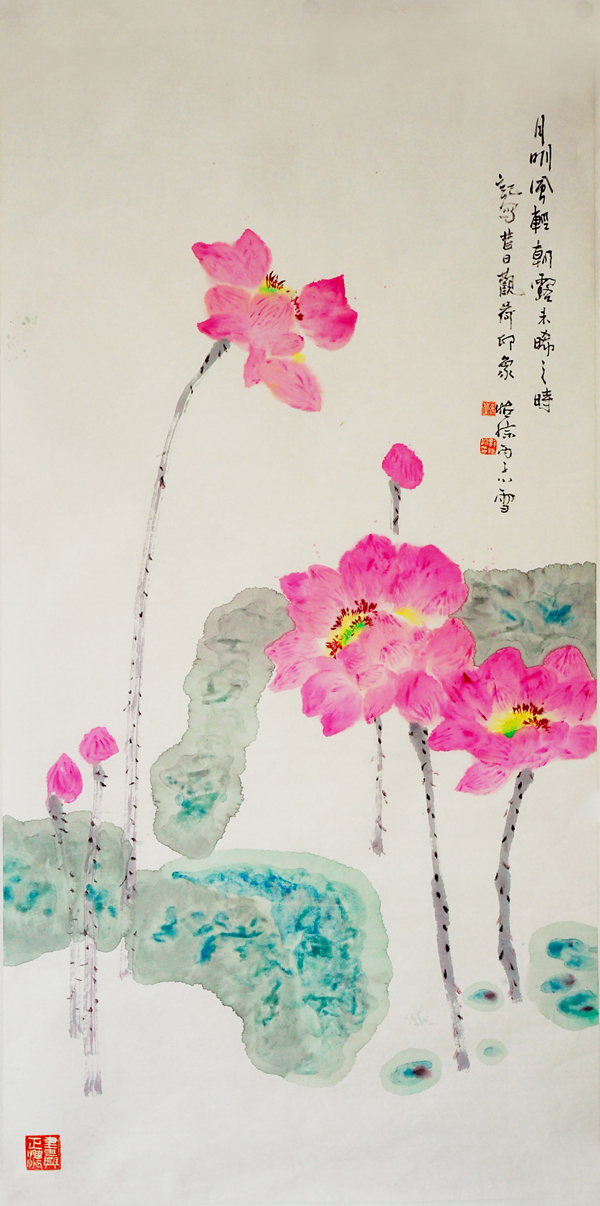 月明風輕朝露未晞之時
記寫昔日觀荷印象
丙子小雪